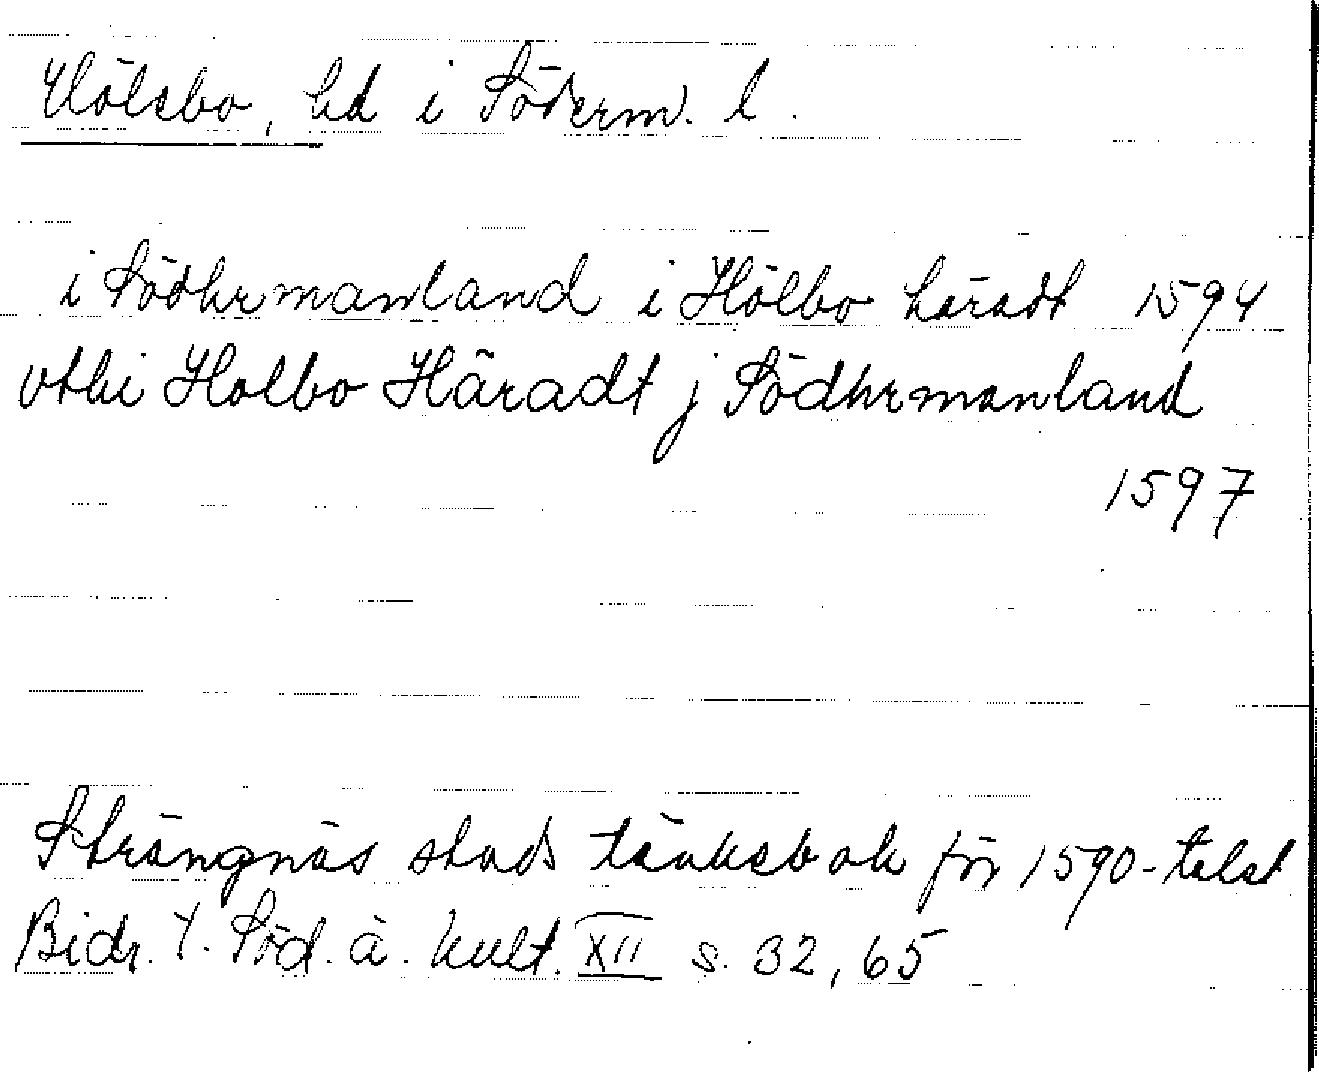 Hölebo, hd i Söderm. l.
i Södhermanland i Hölbo häradt 1594
vthi Holbo Häradt j Södhermanland
1597
Strängnäs stads tänkebok för 1590-talet
Bidr. t. Söd. ä. kult. XII s. 32, 65